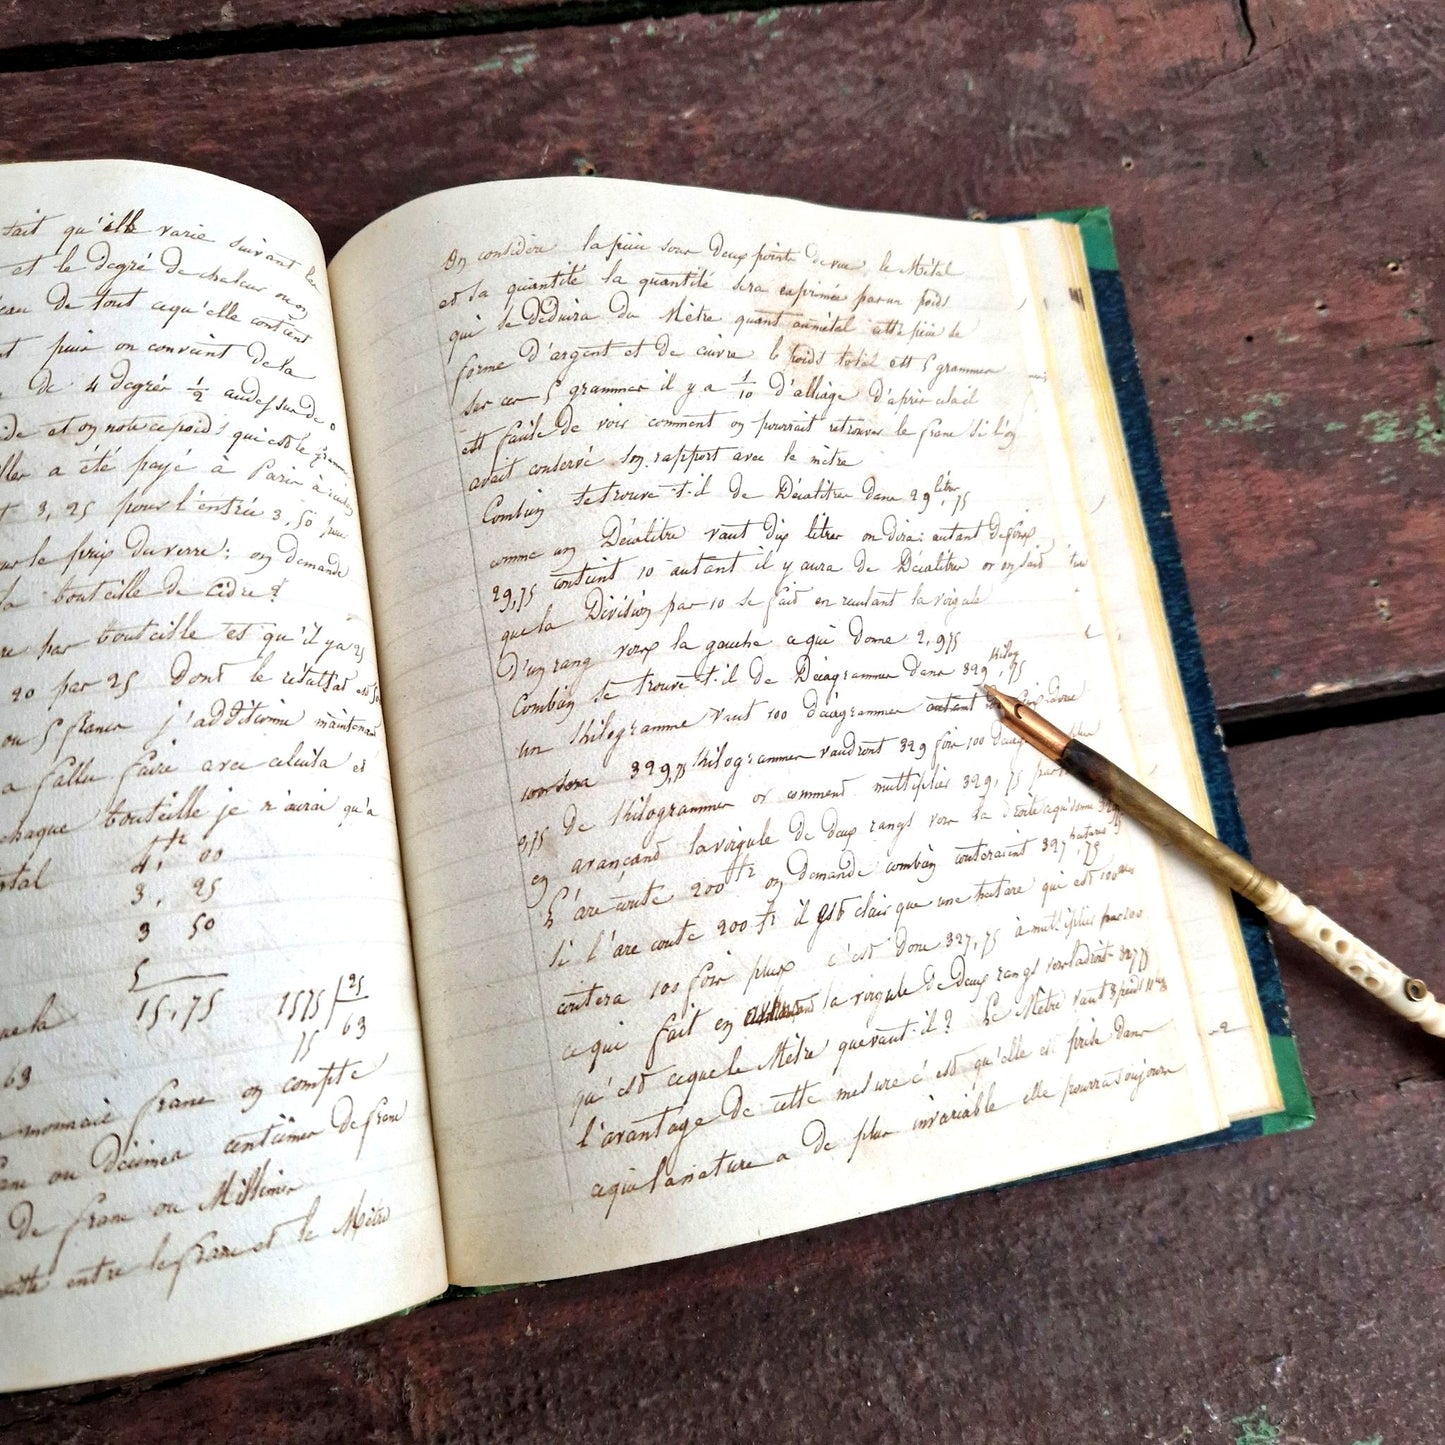 fait qu'elle varie suivant les
et le degré de chaleur ou on
de tout ce qu'elle contient
puis on convient de la
de 4 degrés 1/2 au dessus de 0
et on note ce poids qui est le gramme
a été payé à Paris à raison
3,25 pour l'entrée 3,50 pour
le prix du verre : on demande
la bouteille de cidre ?
par bouteille et qu'il y a 25
20 par 25 dont le résultat est
ou 5 francs j'additionne maintenant
a fallu faire avec celui-là et
chaque bouteille je n'aurai qu'à
total 4, 00
3, 25
3 50
5
15,75 1575 | 25
75 63
63
monnaie franc on compte
ou Décimes centimes de franc
De franc ou Millimes
entre le franc et le Mètre
On considère la pièce sous Deux points de vue, le Métal
et la quantité la quantité sera exprimée par un poids
qui se Déduira du Mètre quant au métal cette pièce se
forme D'argent et de cuivre le poids total est 5 grammes
sur ces 5 grammes il y a 1/10 D'alliage D'après cela il
est facile De voir comment on pourrait retrouver le franc si l'on
avait conservé son rapport avec le mètre
Combien se trouve-t-il de Décalitres dans 29 litres,75
comme un Décalitre vaut Dix litres on dira : autant De fois
29,75 contient 10 autant il y aura de Décalitres or on sait
que la Division par 10 se fait en reculant la virgule
D'un rang vers la gauche ce qui donne 2,975
Combien se trouve-t-il de Décagrammes Dans 329 kilog,75
un Kilogramme vaut 100 décagrammes autant
329,75 Kilogrammes vaudront 329 fois 100 plus
975 De Kilogrammes or comment multiplier 329,75 par
en avançant la virgule De deux rangs vers la Droite ce qui donne
L'are coute 200 fr on demande combien couteraient 327 hectares,75
si l'are coute 200 fr il est clair que une hectare qui est 100 ares
coutera 100 fois plus c'est Donc 327,75 à multiplier par 100
ce qui fait en avançant la virgule De Deux rangs vers la droite 32775
qu'est ce que le Mètre que vaut-il ? Le Mètre vaut 3 pieds
l'avantage De cette mesure c'est qu'elle est prise Dans
ce que la nature a De plus invariable elle pourra toujours